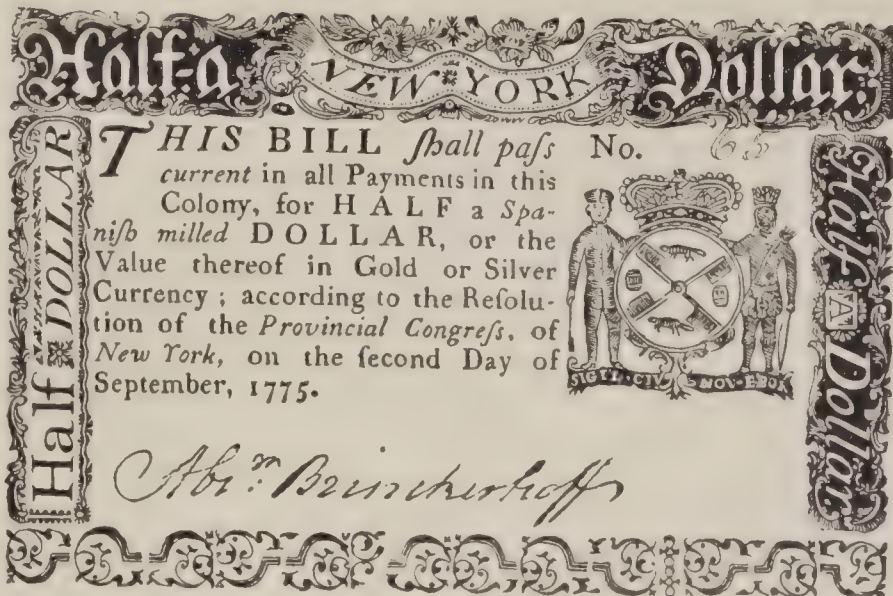 Half-a
NEW YORK
Dollar.
Half DOLLAR
THIS BILL ſhall paſs
current in all Payments in this
Colony, for HALF a Spa-
niſh milled DOLLAR, or the
Value thereof in Gold or Silver
Currency; according to the Reſolu-
tion of the Provincial Congreſs, of
New York, on the ſecond Day of
September, 1775.
No.
SIGYL·CIV NOV·EBOR
Half A Dollar
Abrm. Brinckerhoff